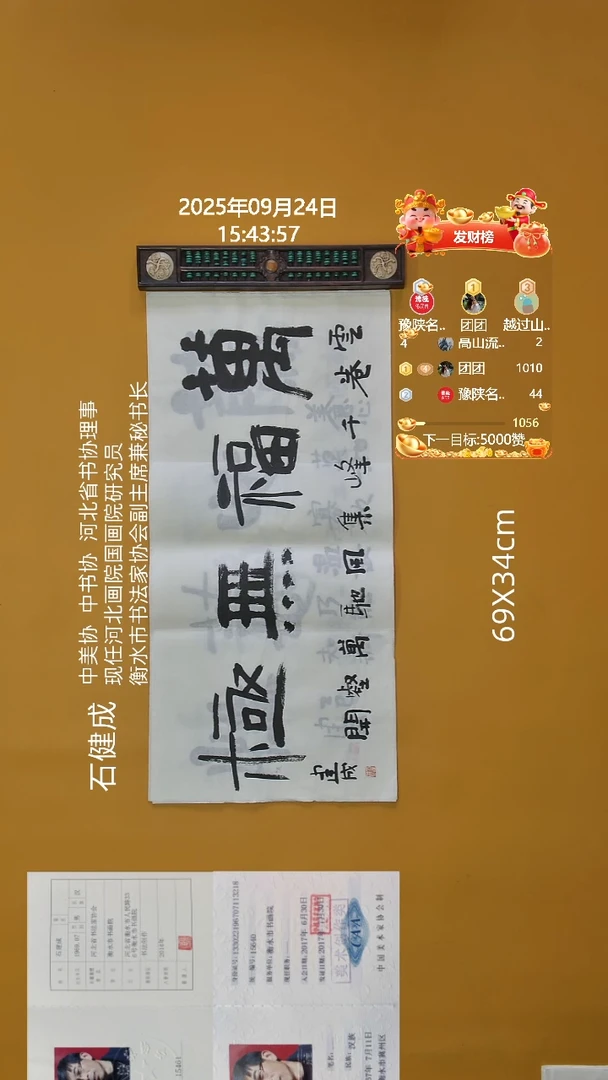 2025年09月24日
15:43:57
发财榜
豫陕名..
团团
越过山..
4 高山流.. 2
1 团团 1010
2 豫陕名.. 44
1056
下一目标:5000赞
中美协 中书协 河北省书协理事
现任河北画院国画院研究员
衡水市书法家协会副主席兼秘书长
石健成
69X34cm
萬福無極
雲卷千峰集風馳萬壑開
建成
中国美术家协会制